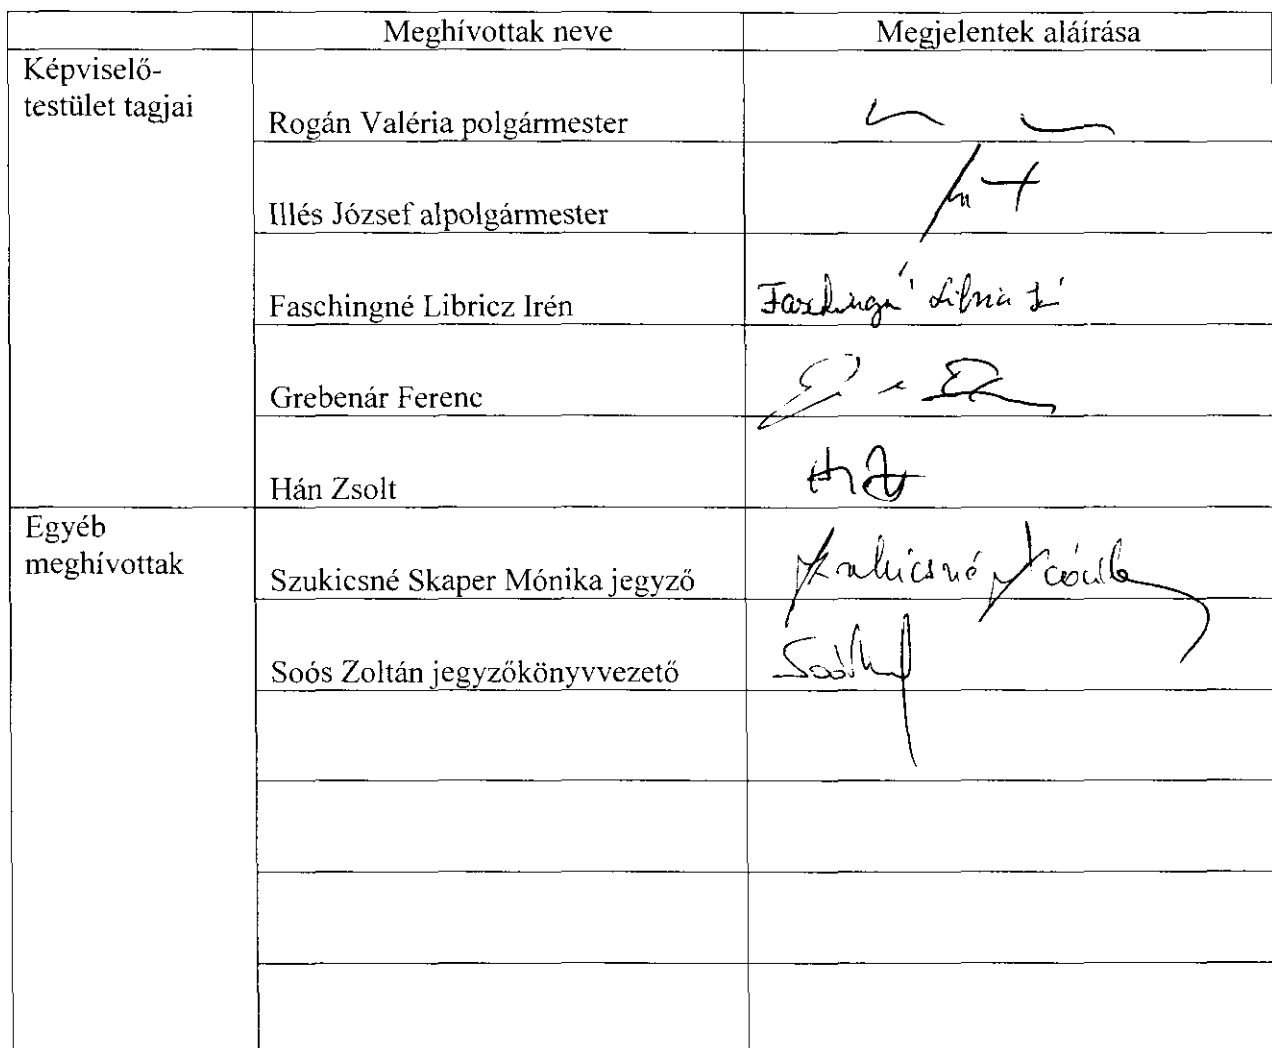 Meghívottak neve Megjelentek aláírása
Képviselő-
testület tagjai
Rogán Valéria polgármester
Illés József alpolgármester
Faschingné Libricz Irén
Grebenár Ferenc
Hán Zsolt
Egyéb
meghívottak
Szukicsné Skaper Mónika jegyző
Soós Zoltán jegyzőkönyvvezető